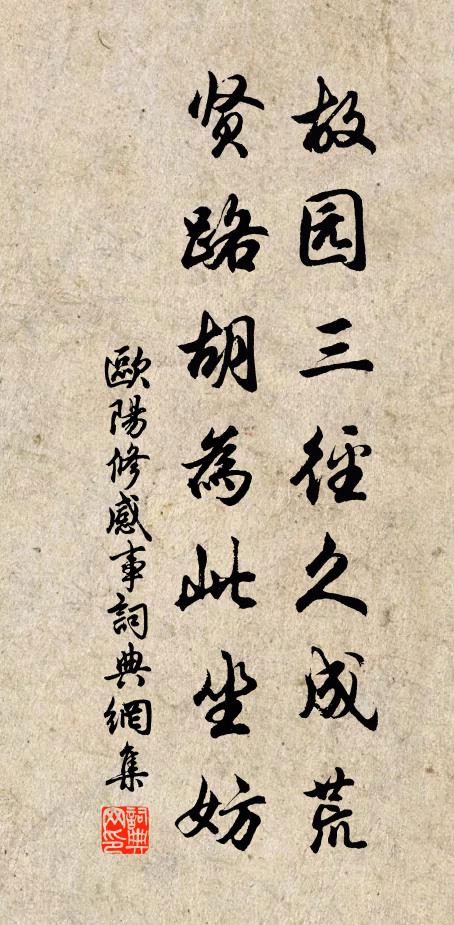 故园三径久成荒
贤路胡為此坐妨
歐陽修感事詞典網集
詞典
网印